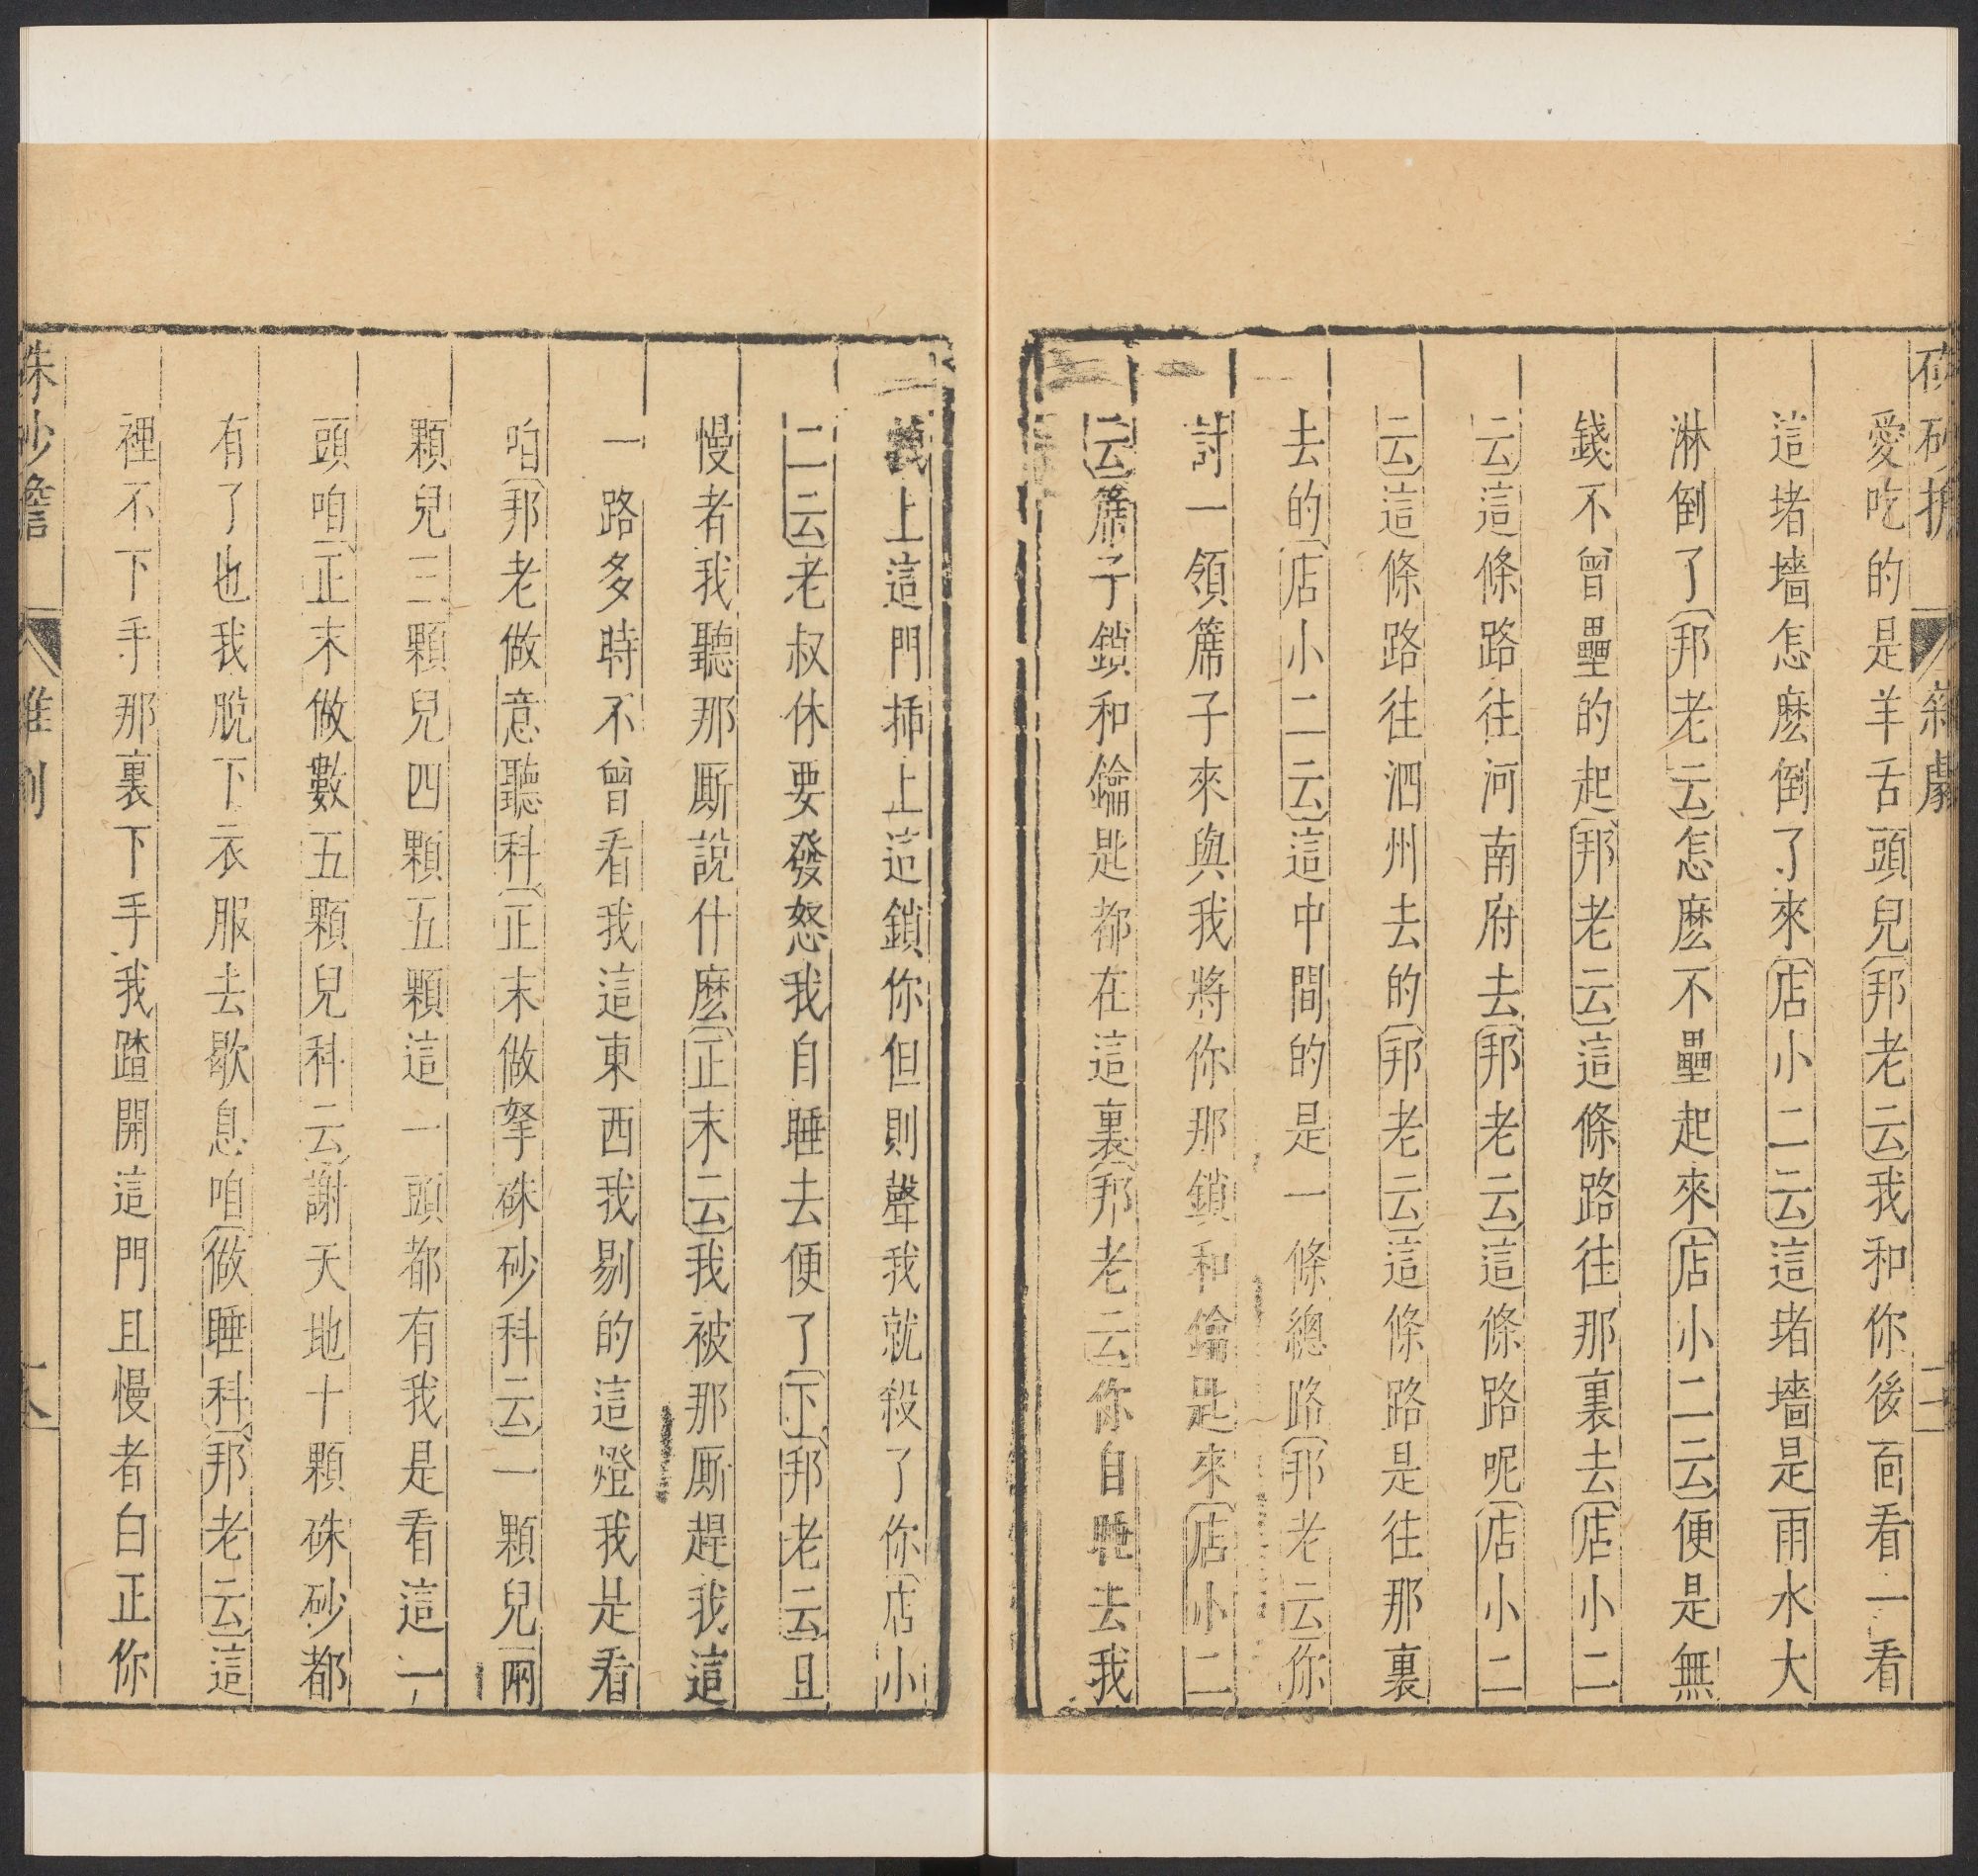 硃砂擔 雜劇
愛吃的是羊舌頭兒〔邦老云〕我和你後面看一看
這堵墻怎麽倒了來〔店小二云〕這堵墻是雨水大
淋倒了〔邦老云〕怎麽不壘起來〔店小二云〕便是無
錢不曾壘的起〔邦老云〕這條路往那裏去〔店小二
云〕這條路往河南府去〔邦老云〕這條路呢〔店小二
云〕這條路往泗州去的〔邦老云〕這條路是往那裏
去的〔店小二云〕這中間的是一條總路〔邦老云〕你
討一領蓆子來與我將你那鎖和鑰匙來〔店小二
云〕蓆子鎖和鑰匙都在這裏〔邦老云〕你自睡去我
上這門揷上這鎖你但則聲我就殺了你〔店小
二云〕老叔休要發怒我自睡去便了〔下〕〔邦老云〕且
慢者我聽那厮說什麽〔正末云〕我被那厮趕我這
一路多時不曾看我這東西我剔的這燈我是看
咱〔邦老做意聽科〕〔正末做拏硃砂科云〕一顆兒兩
顆兒三顆兒四顆五顆這一頭都有我是看這一
頭咱〔正末做數五顆兒科云〕謝天地十顆硃砂都
有了也我脫下衣服去歇息咱〔做睡科〕〔邦老云〕這
裡不下手那裏下手我踏開這門且慢者白正你
硃砂擔 雜劇